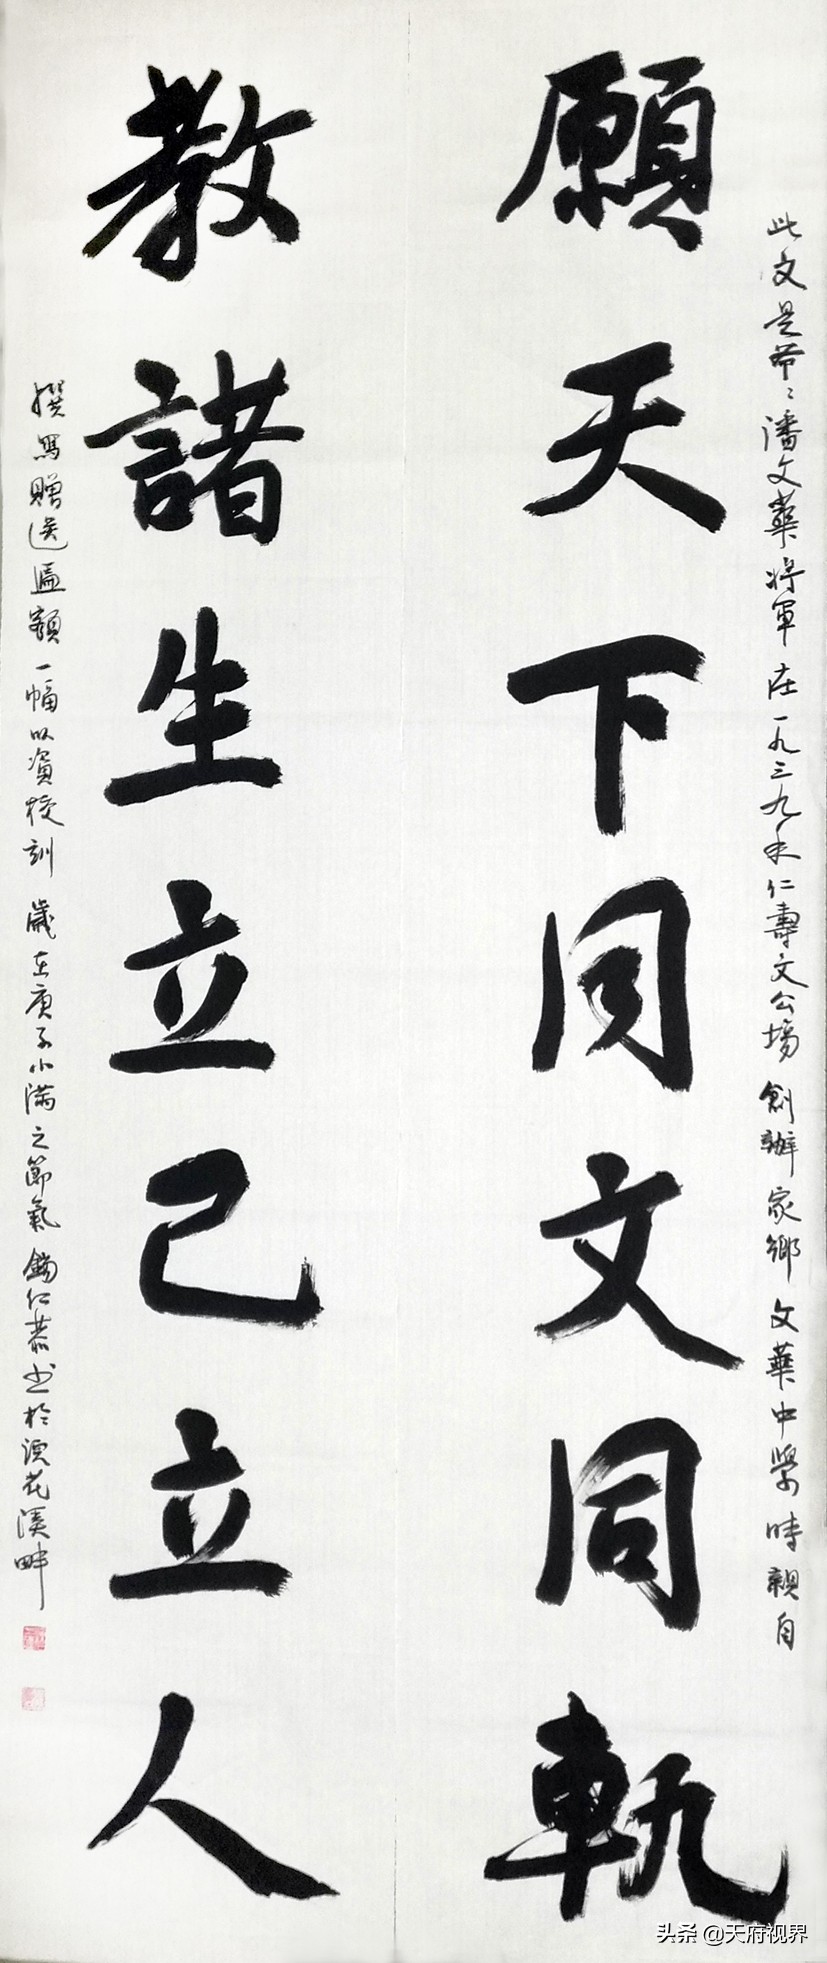 此文是爷〻潘文華将軍在一九三九年仁壽文公場創辦家鄉文華中學時親自
願天下同文同軌
教諸生立己立人
撰寫贈送匾額一幅以資校訓歲在庚子小满之節氣錫仁恭书於浣花溪畔
头条 @天府视界